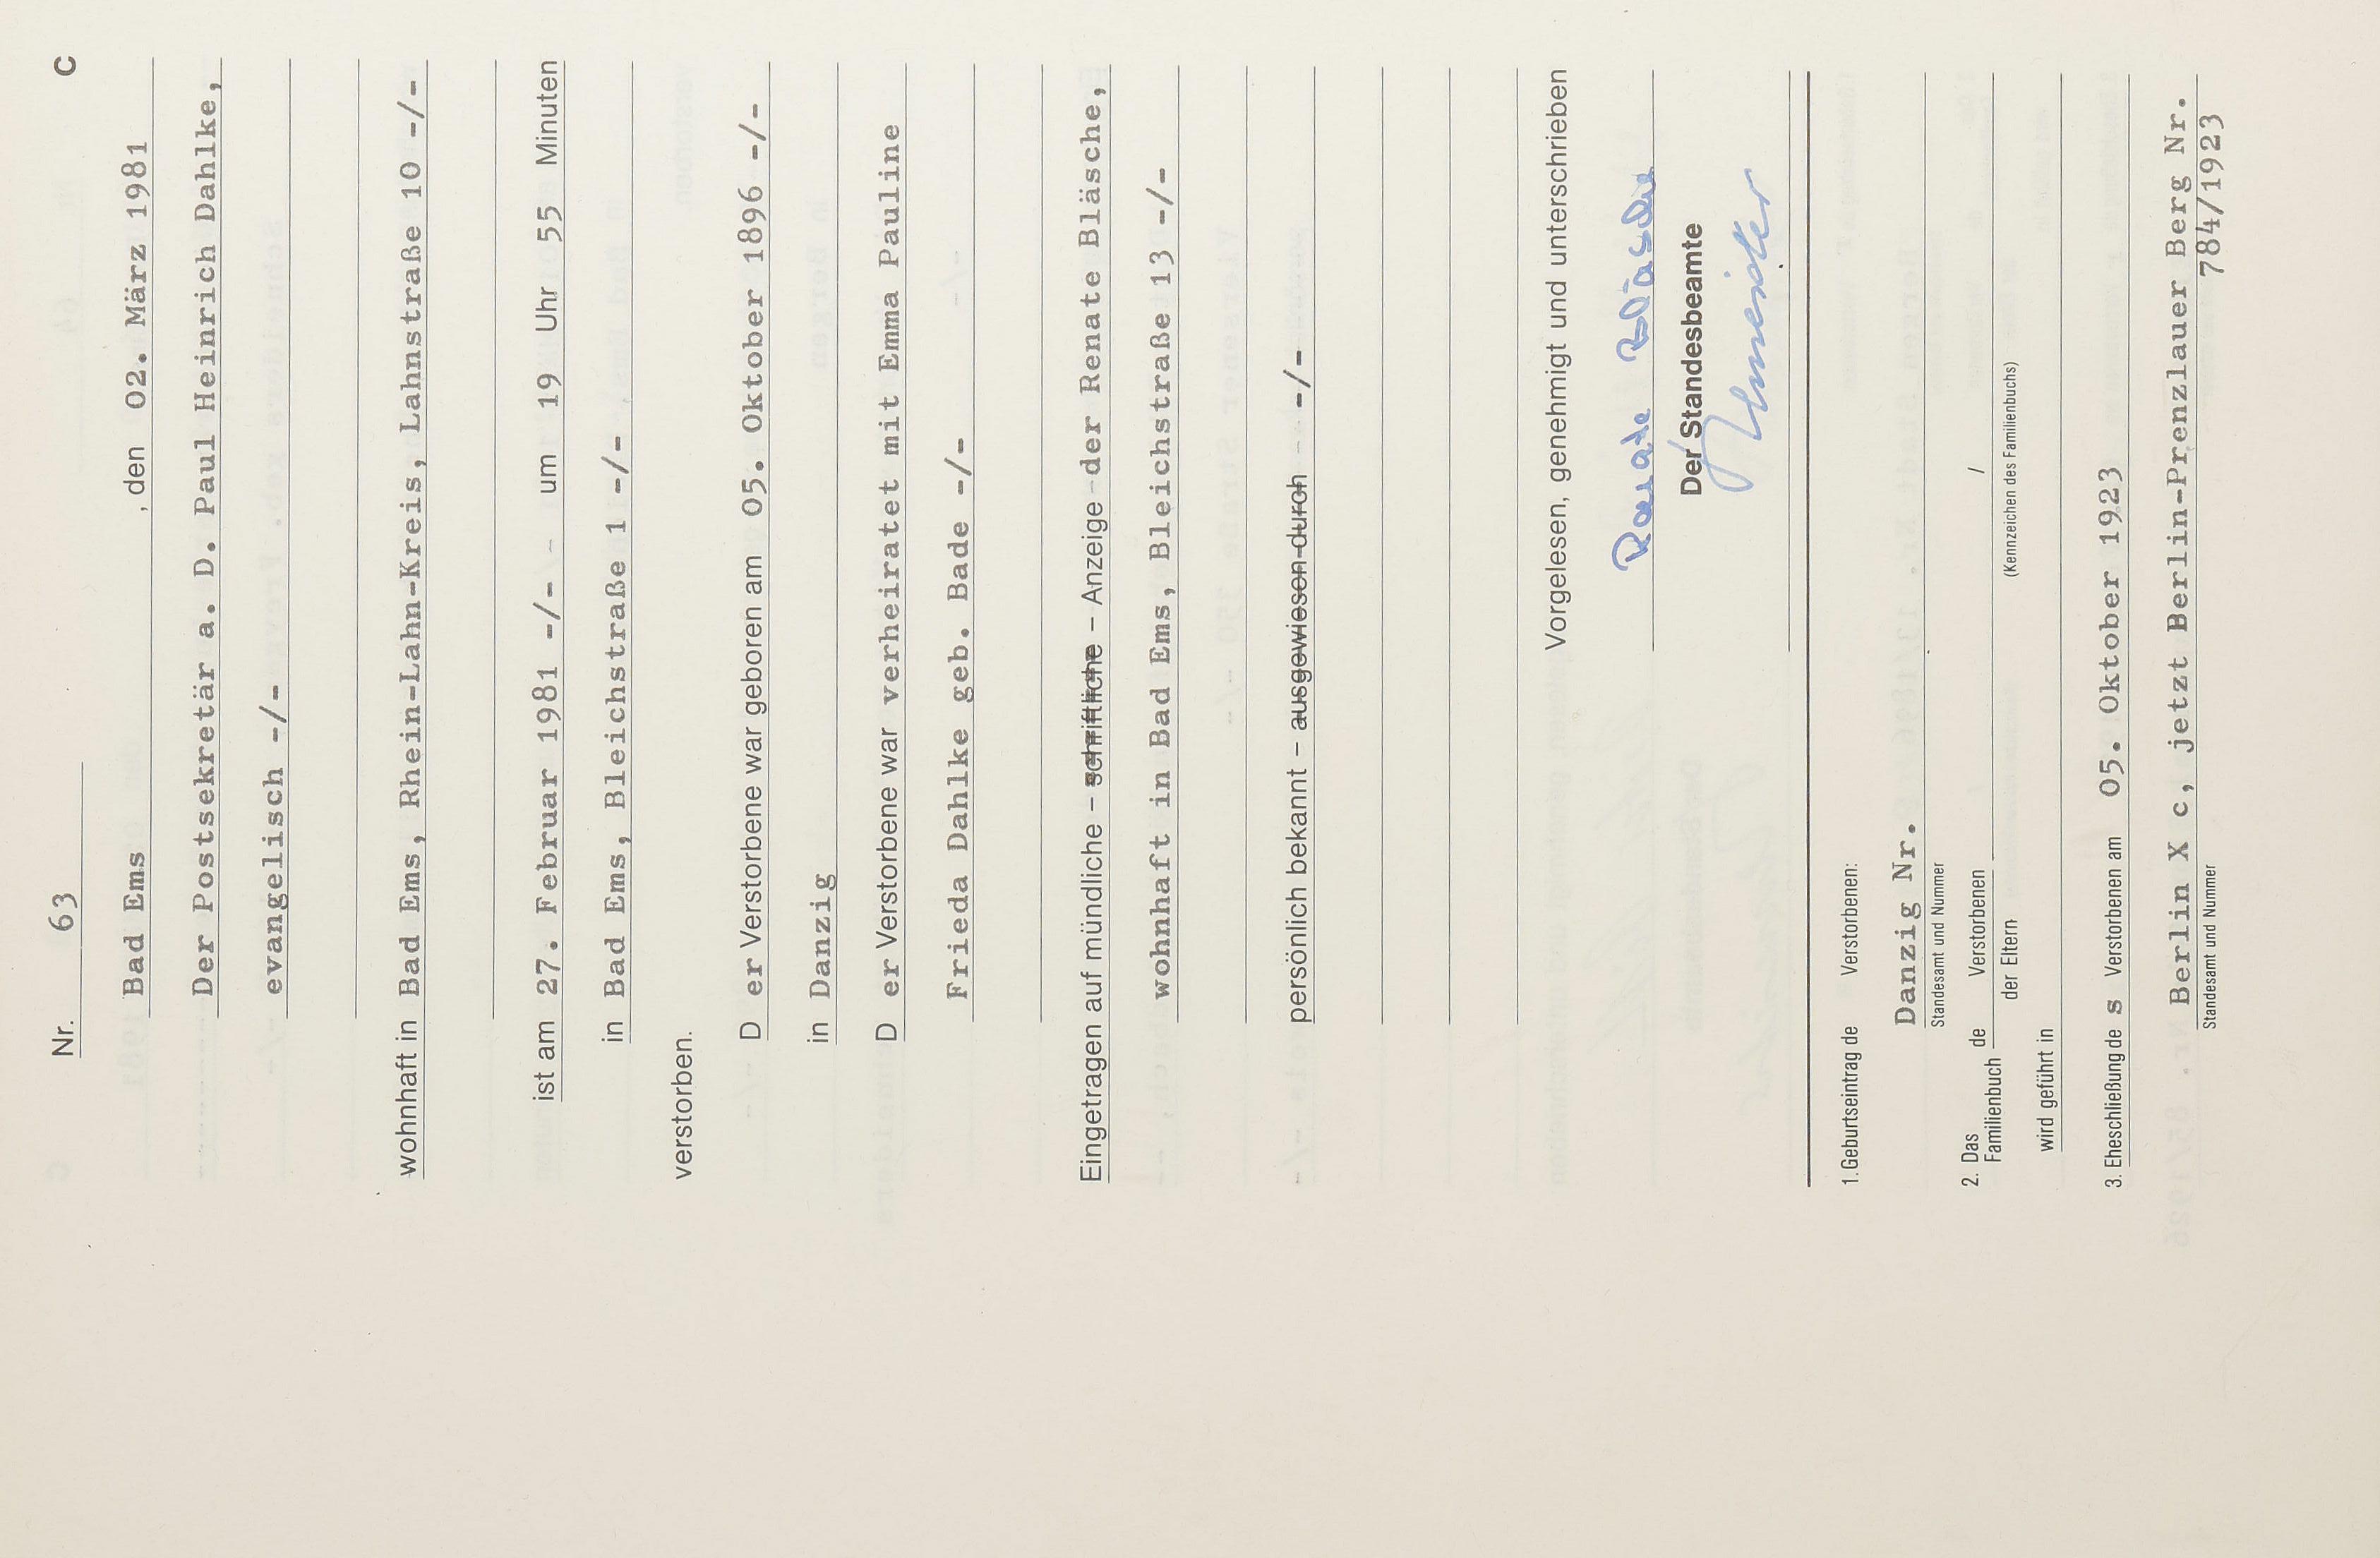 Nr. 63 C
Bad Ems , den 02. März 1981
Der Postsekretär a. D. Paul Heinrich Dahlke,
evangelisch -/-
wohnhaft in Bad Ems, Rhein-Lahn-Kreis, Lahnstraße 10 -/-
ist am 27. Februar 1981 -/- um 19 Uhr 55 Minuten
in Bad Ems, Bleichstraße 1 -/-
verstorben.
D er Verstorbene war geboren am 05. Oktober 1896 -/-
in Danzig
D er Verstorbene war verheiratet mit Emma Pauline
Frieda Dahlke geb. Bade -/-
Eingetragen auf mündliche – schriftliche – Anzeige - der Renate Bläsche,
wohnhaft in Bad Ems, Bleichstraße 13 -/-
persönlich bekannt – ausgewiesen durch -/-
Vorgelesen, genehmigt und unterschrieben
Renate Bläsche
Der Standesbeamte
1. Geburtseintrag de Verstorbenen:
Danzig Nr.
Standesamt und Nummer
2. Das Familienbuch de Verstorbenen /
der Eltern (Kennzeichen des Familienbuchs)
wird geführt in
3. Eheschließung de s Verstorbenen am 05. Oktober 1923
Berlin X c, jetzt Berlin-Prenzlauer Berg Nr.
784/1923
Standesamt und Nummer